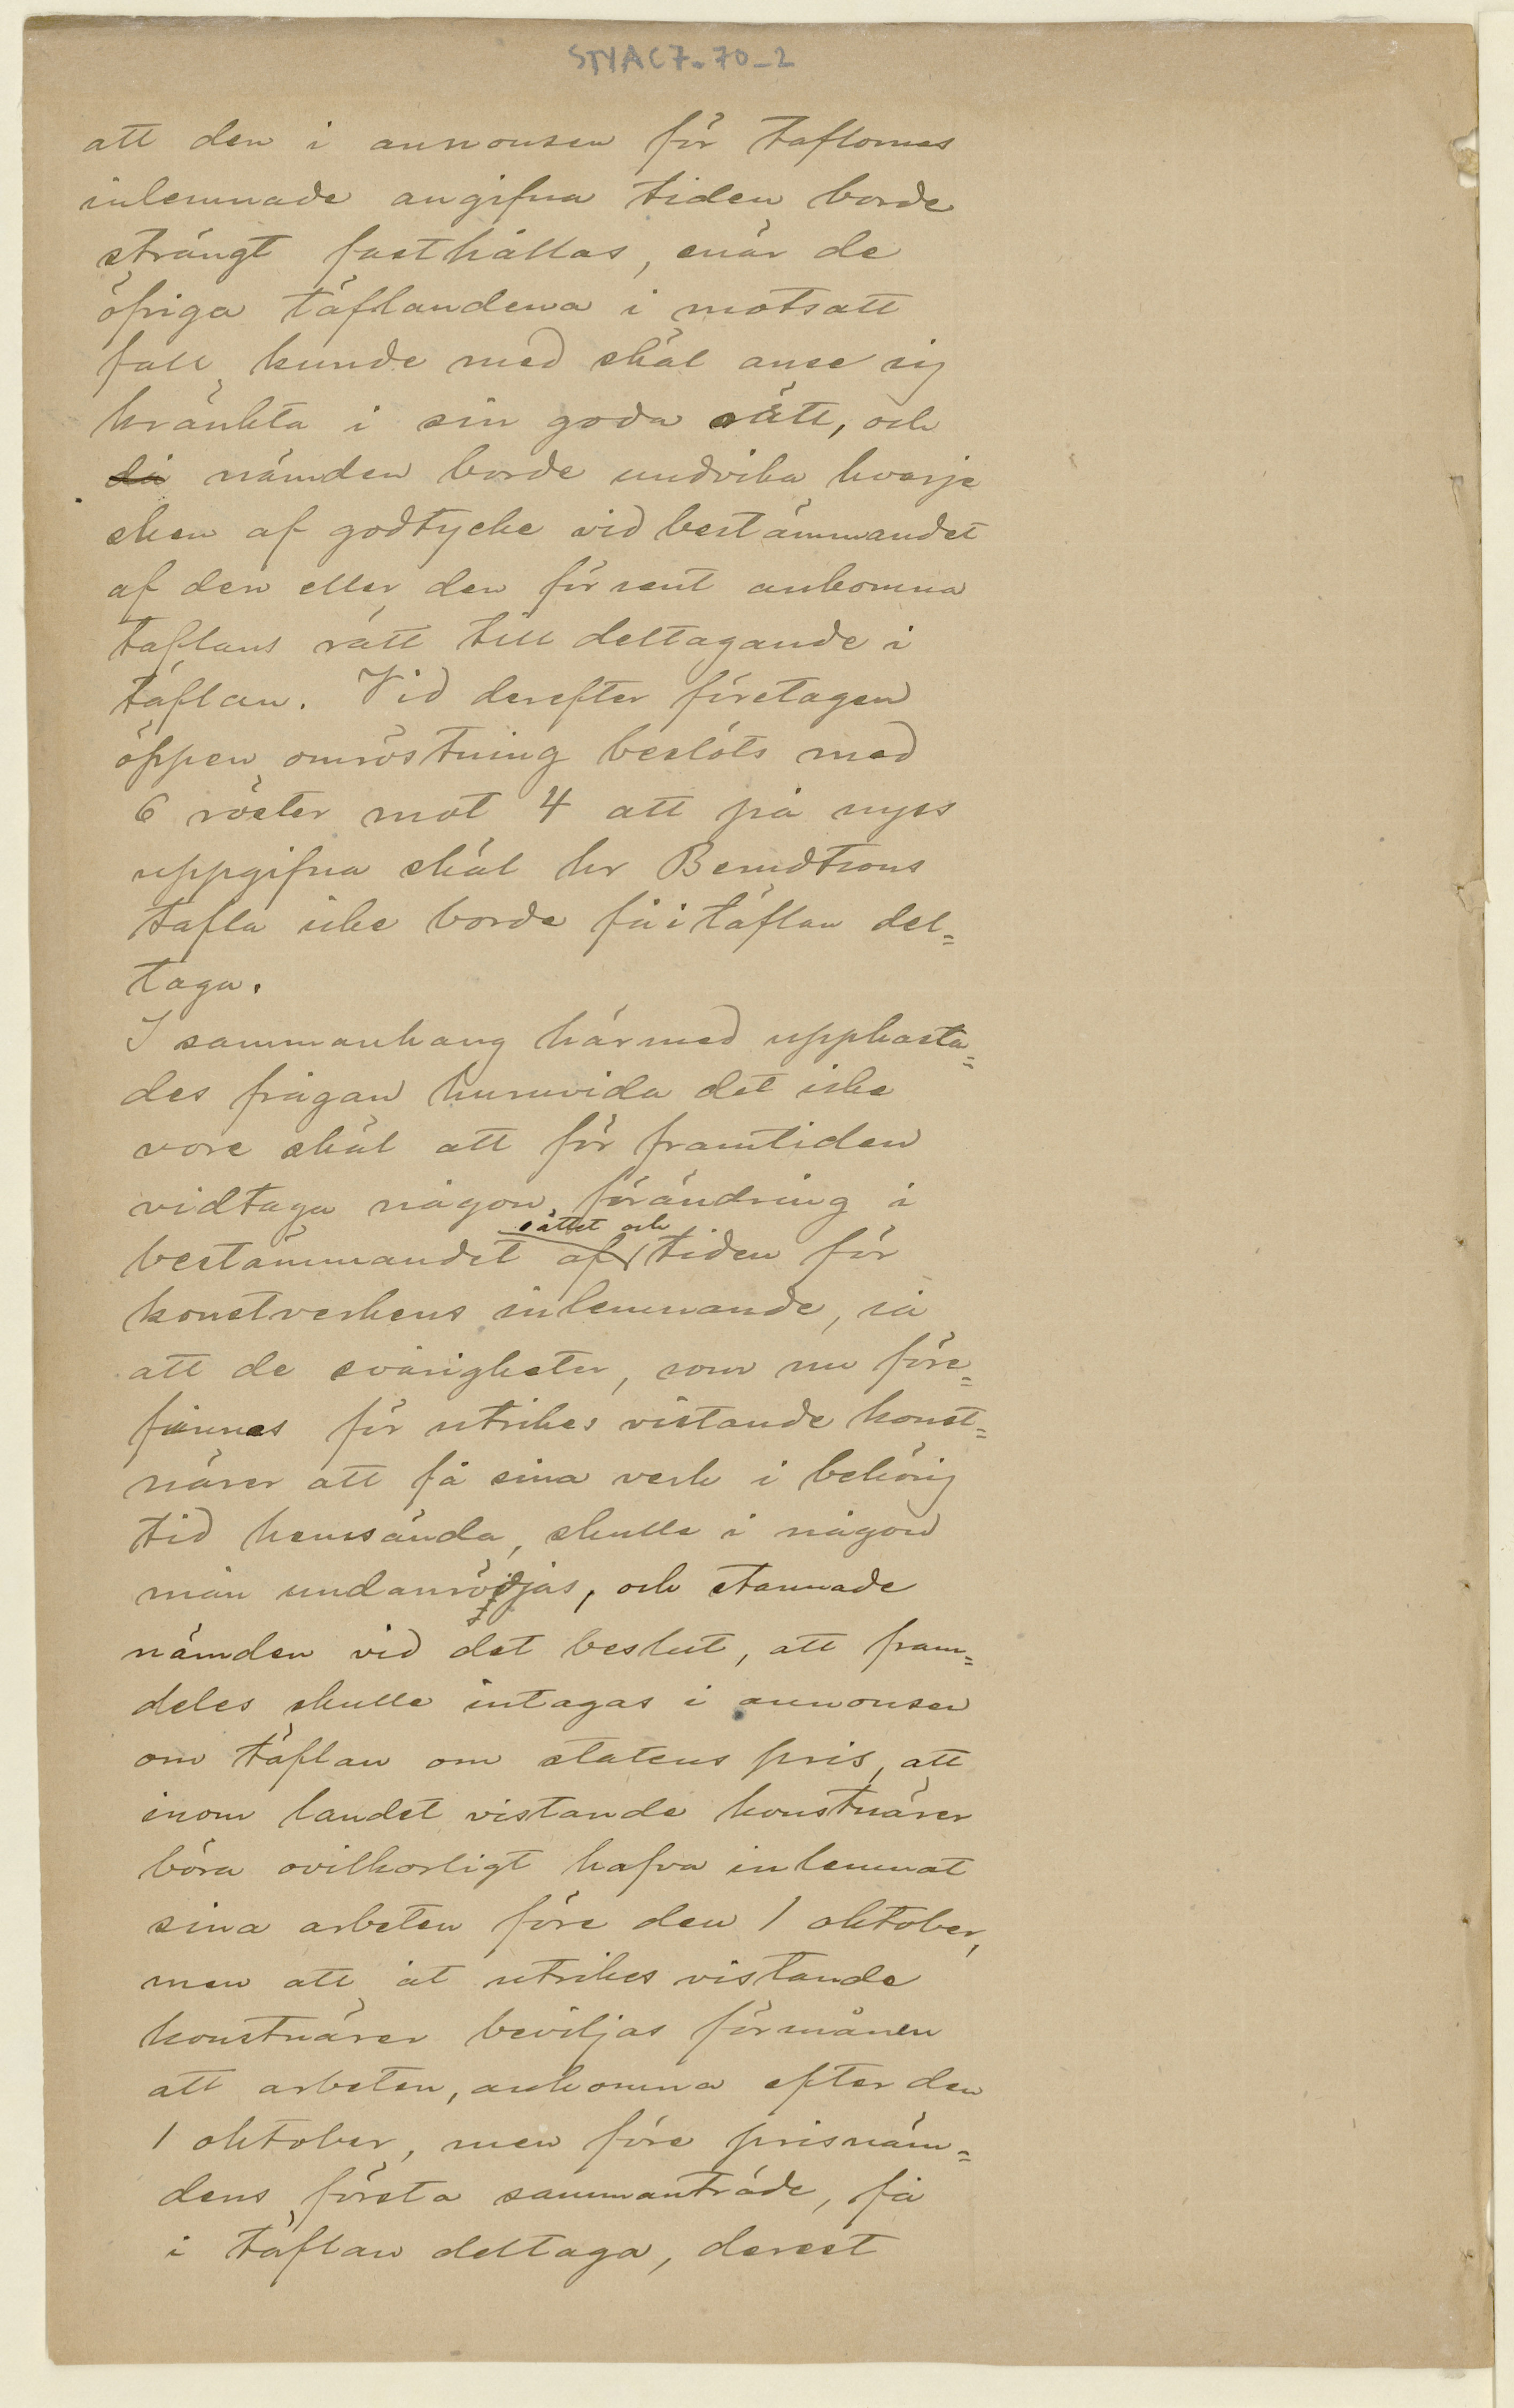 STYAC7-70-2
att den i annonsen för taflornas
inlemnade angifna tiden borde
strängt fasthållas, enär de
öfriga täflandena i motsatt
fall kunde med skäl anse sig
kränkta i sin goda rätt, och
då nämden borde undvika hvarje
sken af godtycke vid bestämmandet
af den eller den för sent ankomna
taflans rätt till deltagande i
täflan. Vid derefter företagen
öppen omröstning beslöts med
6 röster mot 4 att på nyss
uppgifna skäl hr Berndtsons
tafla icke borde få i täflan del=
taga.
I sammanhang härmed uppkasta=
des frågan huruvida det icke
vore skäl att för framtiden
vidtaga någon förändring i
sättet och
bestämmandet af tiden för
konstverkens inlemnande, så
att de svårigheter, som nu före=
finnes för utrikes vistande konst=
närer att få sina verk i behörig
tid hemsända, skulle i någon
mån undanrödjas, och stannade
nämden vid det beslut, att fram=
deles skulle intagas i annonsen
om täflan om statens pris, att
inom landet vistande konstnärer
böra ovilkorligt hafva inlemnat
sina arbeten före den 1 oktober,
men att åt utrikes vistande
konstnärer beviljas förmånen
att arbeten, ankomna efter den
1 oktober, men före prisnäm=
dens första sammanträde, få
i täflan deltaga, derest